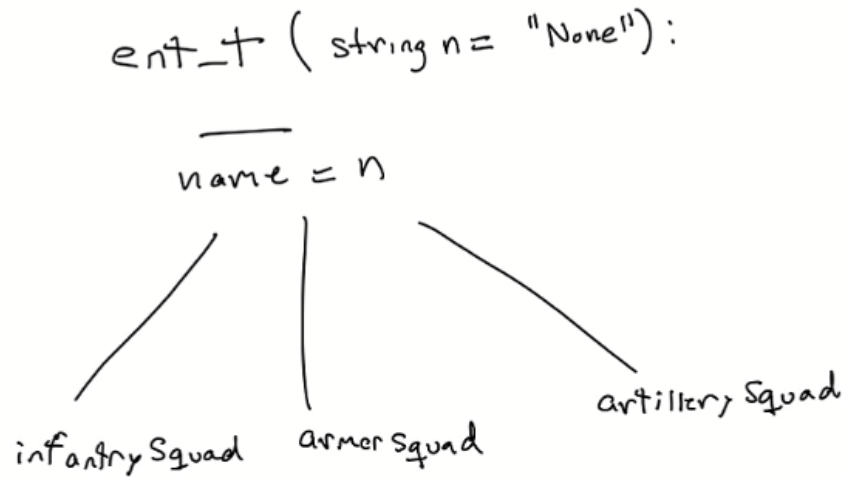 ent_t ( string n = "None"):
name = n
infantry Squad armor Squad artillery Squad